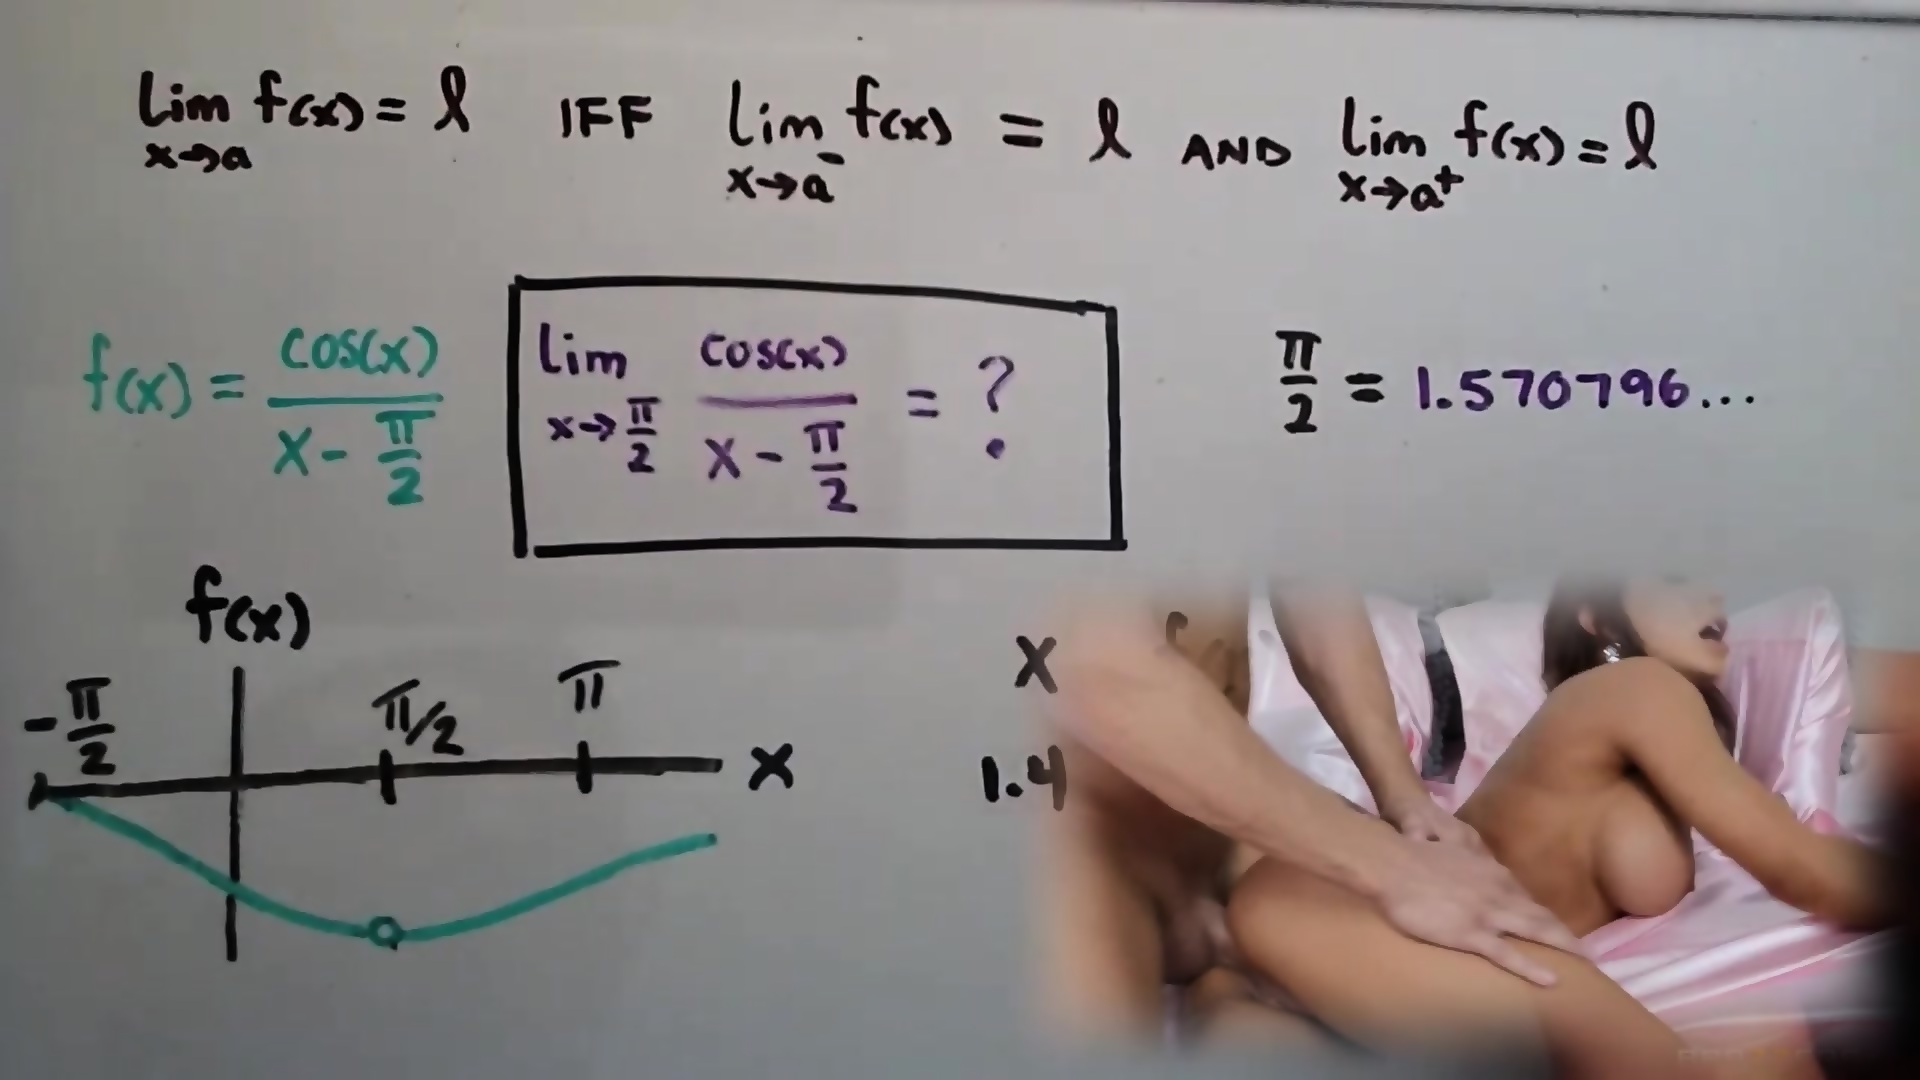 lim f(x) = l IFF lim f(x) = l AND lim f(x) = l
x→a x→a⁻ x→a⁺
f(x) = cos(x) / (x - π/2)
lim x→π/2 cos(x) / (x - π/2) = ?
π/2 = 1.570796...
f(x)
-π/2 π/2 π x
x
1.4